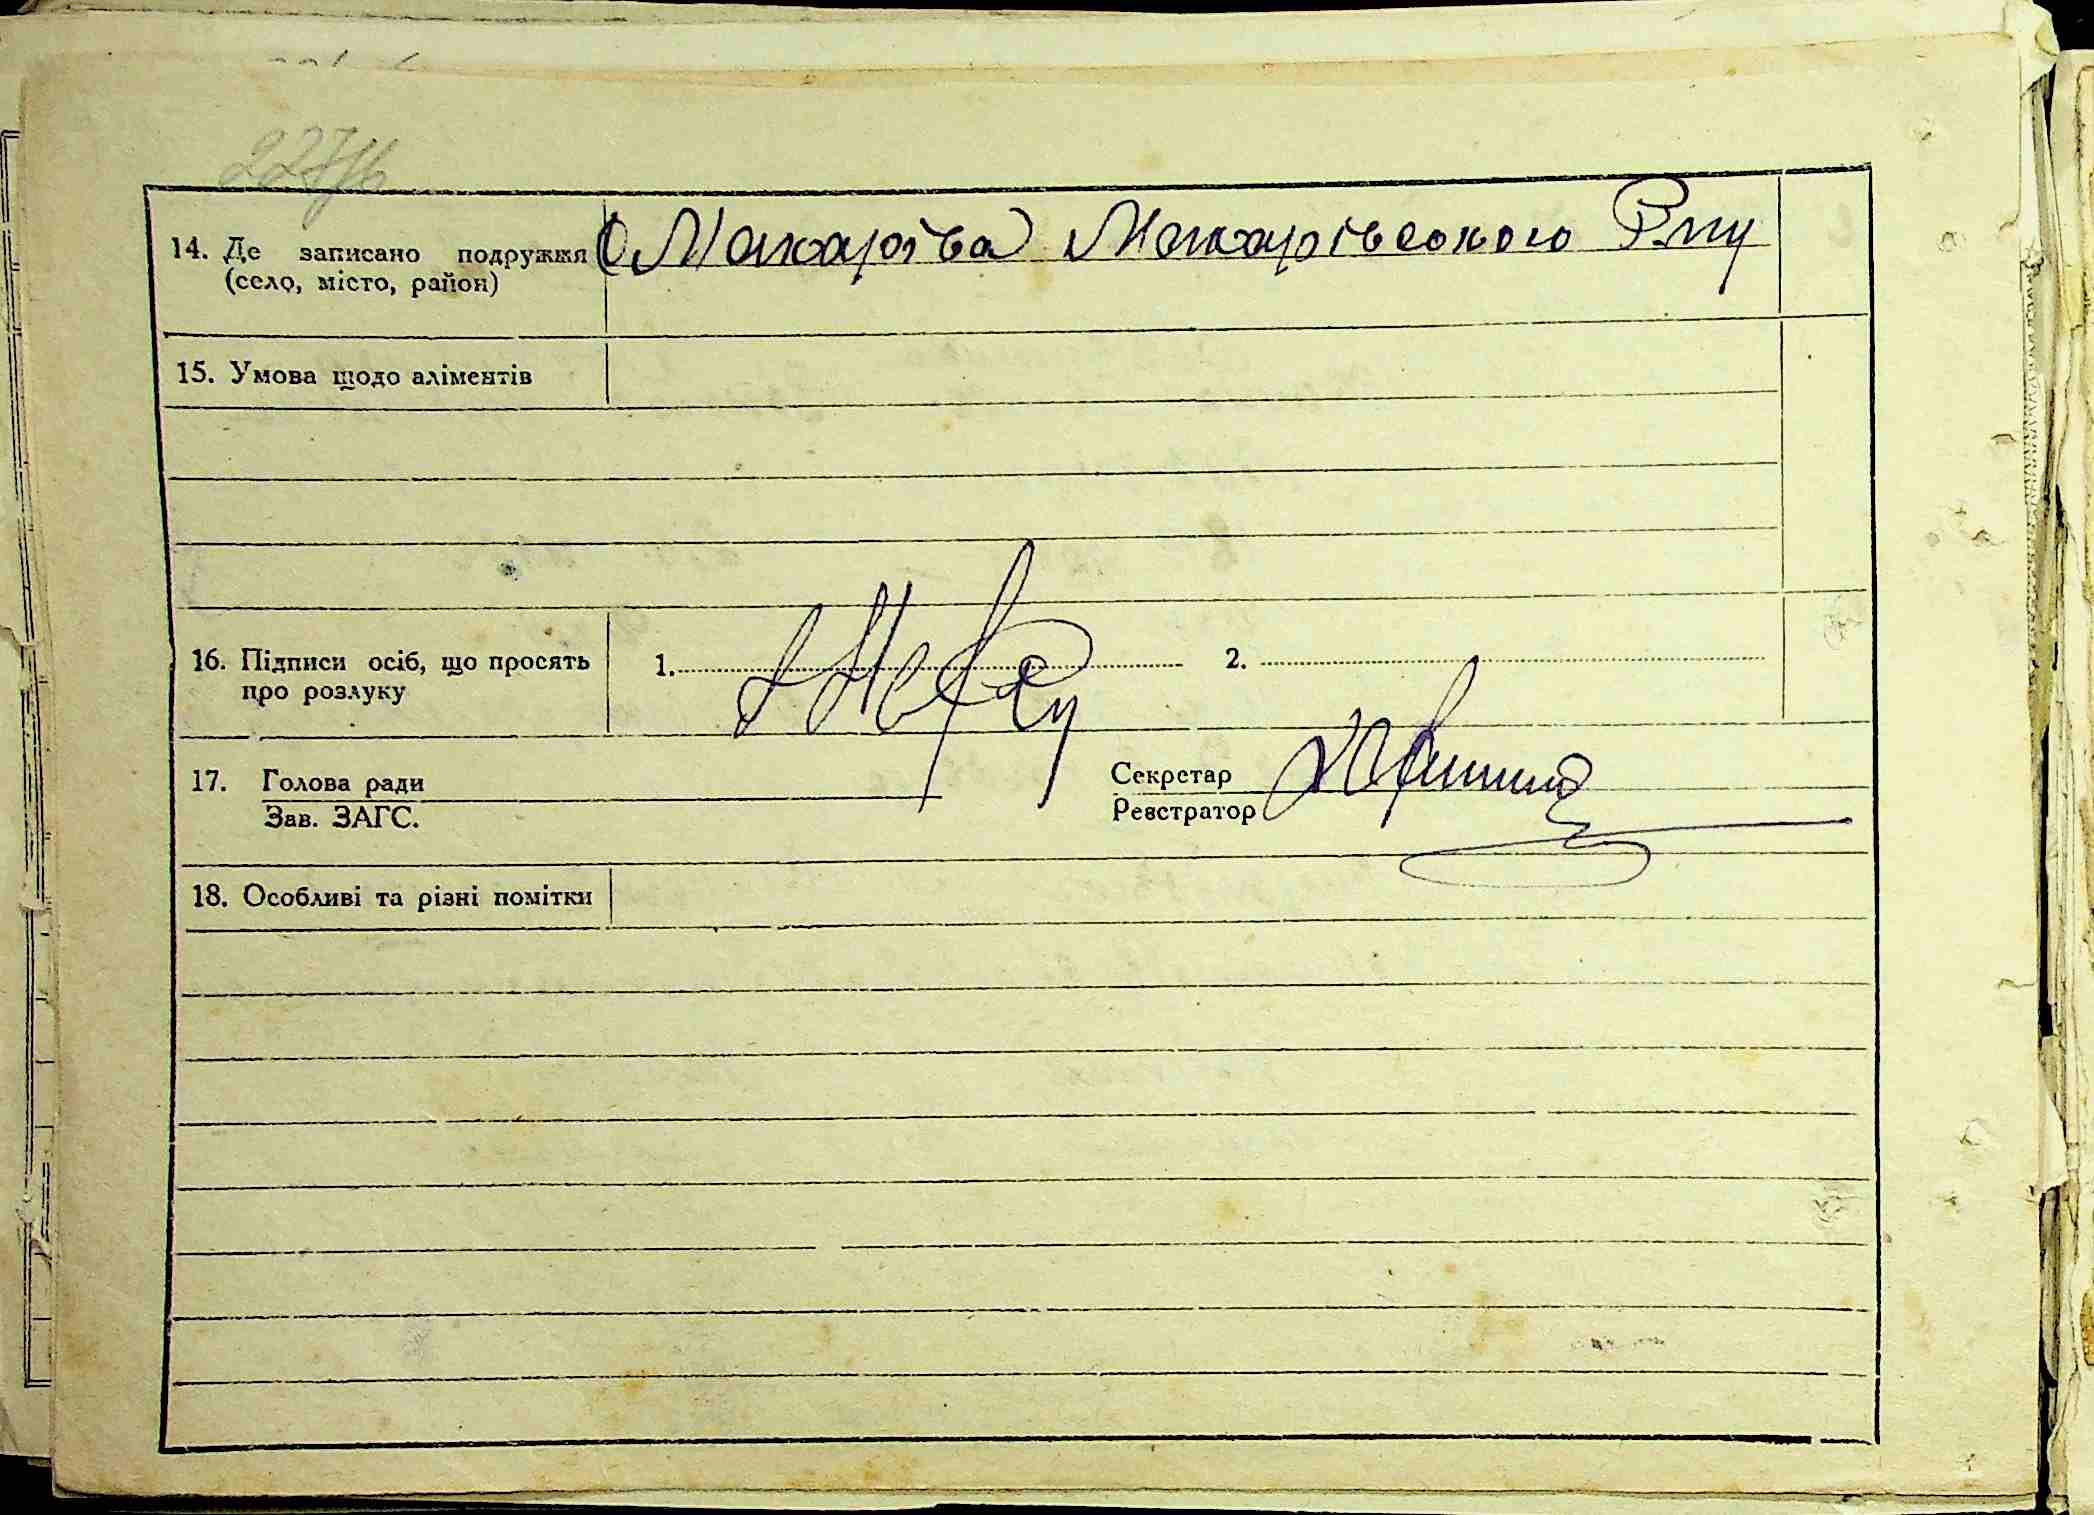 14. Де записано подружжя
(село, місто, район)
с Макарова Макарівського Р.ну
15. Умова щодо аліментів
16. Підписи осіб, що просять
про розлуку
1. 2.
17. Голова ради
Зав. ЗАГС.
Секретар
Реєстратор
18. Особливі та різні помітки